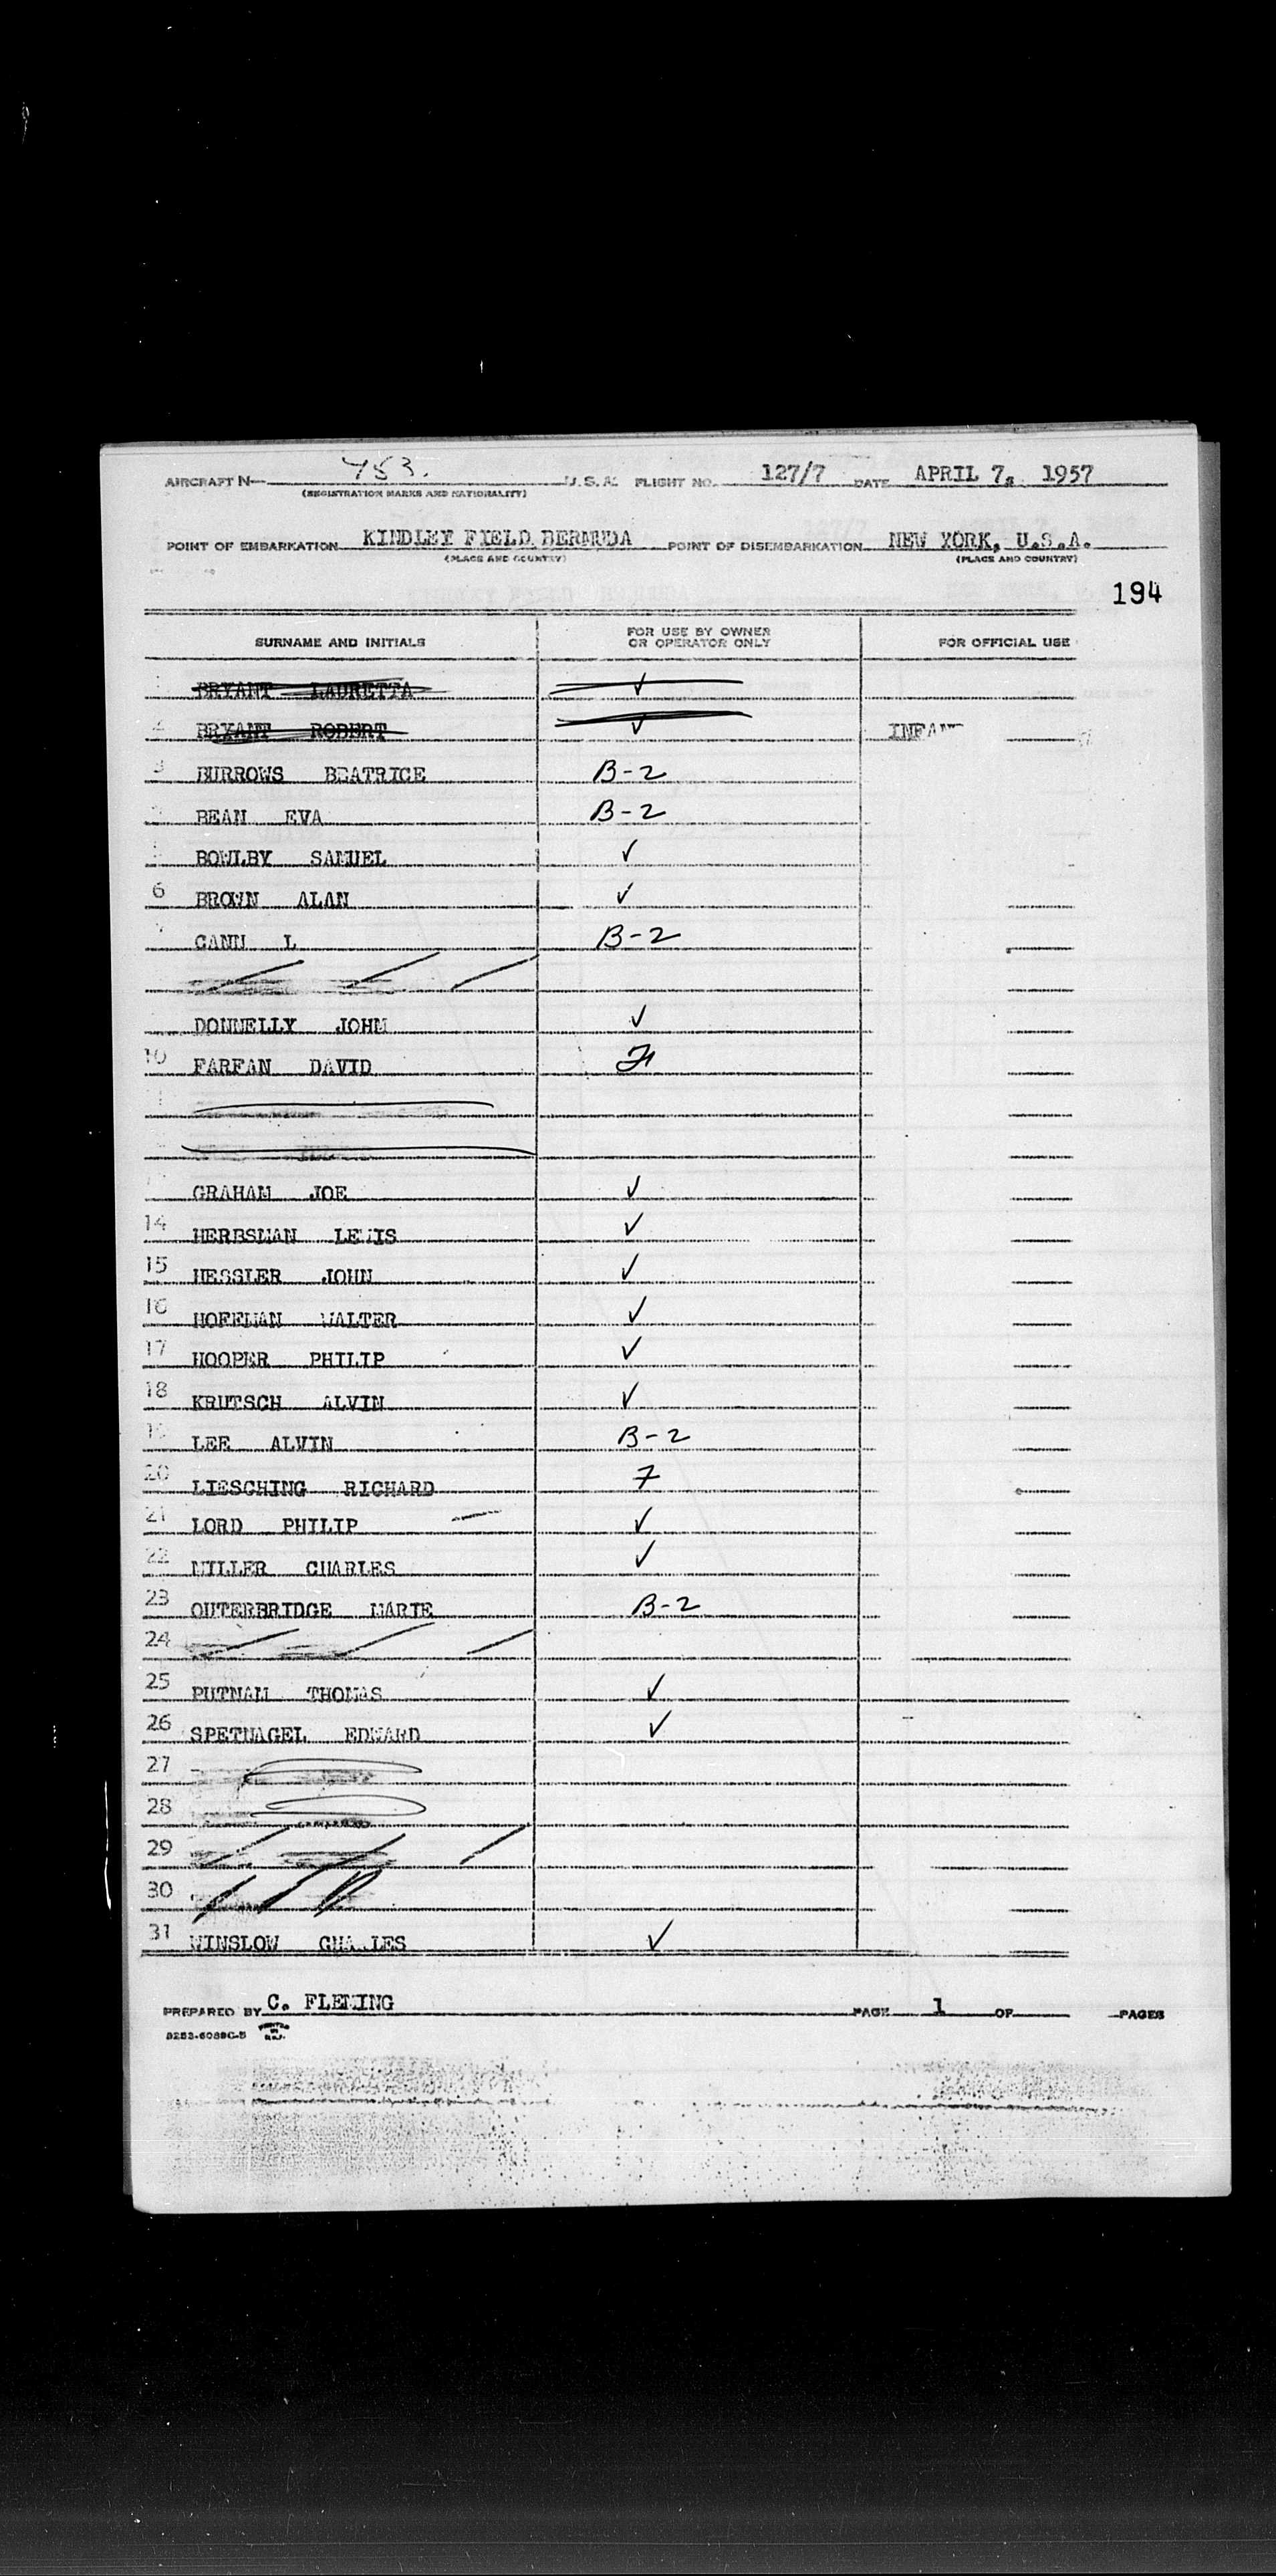 AIRCRAFT N— 753. U.S.A. FLIGHT NO. 127/7 DATE APRIL 7, 1957
(REGISTRATION MARKS AND NATIONALITY)
POINT OF EMBARKATION KINDLEY FIELD BERMUDA POINT OF DISEMBARKATION NEW YORK, U.S.A.
(PLACE AND COUNTRY) (PLACE AND COUNTRY)
194
SURNAME AND INITIALS FOR USE BY OWNER OR OPERATOR ONLY FOR OFFICIAL USE
BRYANT LAURETTA ✓
BRYANT ROBERT ✓ INFANT
3 BURROWS BEATRICE B-2
BEAN EVA B-2
BOWLBY SAMUEL ✓
6 BROWN ALAN ✓
7 CANN L B-2
DONNELLY JOHN ✓
10 FARFAN DAVID
GRAHAM JOE ✓
14 HERBSMAN LEWIS ✓
15 HESSLER JOHN ✓
16 HOFFMAN WALTER ✓
17 HOOPER PHILIP ✓
18 KRUTSCH ALVIN ✓
19 LEE ALVIN B-2
20 LIESCHING RICHARD 7
21 LORD PHILIP ✓
22 MILLER CHARLES ✓
23 OUTERBRIDGE MARIE B-2
24
25 PUTNAM THOMAS ✓
26 SPETNAGEL EDWARD ✓
27
28
29
30
31 WINSLOW CHARLES ✓
PREPARED BY C. FLEMING PAGE 1 OF PAGES